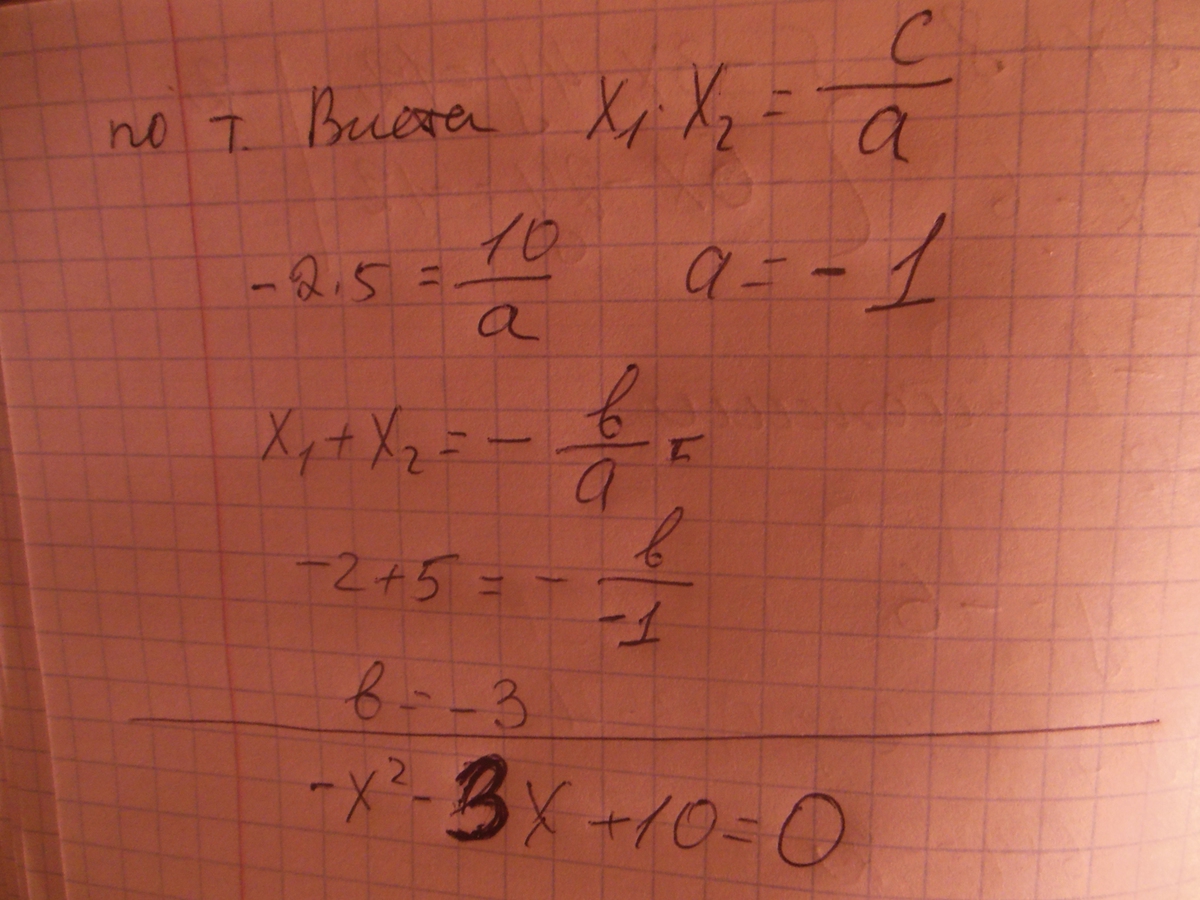 по т. Виета x₁·x₂ = c/a
-2·5 = 10/a a = -1
x₁+x₂ = - b/a =
-2+5 = - b/-1
b = -3
-x² - 3x + 10 = 0